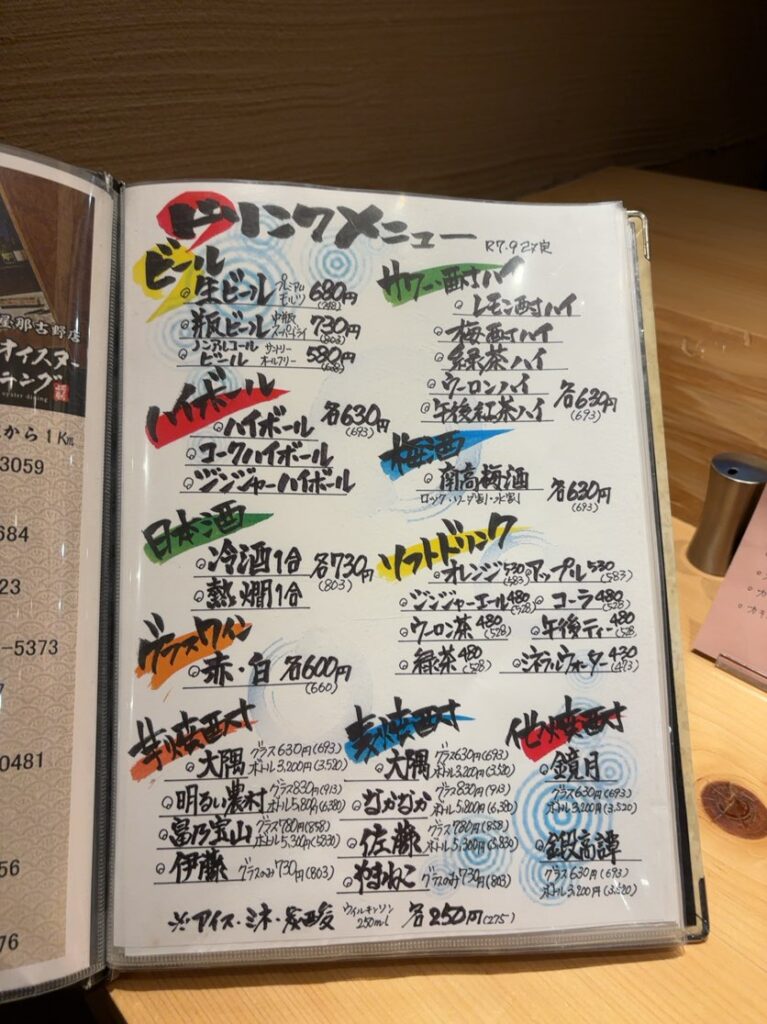 屋那古野店
オイスター
oyster dining
から1Km
3059
684
23
-5373
0481
56
76
ドリンクメニュー
R7.9改定
ビール
生ビール プレミアムモルツ 680円(748)
瓶ビール 中瓶 スーパードライ 730円(803)
ノンアルコールビール サントリー オールフリー 580円
ハイボール
ハイボール 各630円(693)
コークハイボール
ジンジャーハイボール
日本酒
冷酒1合 各730円(803)
熱燗1合
グラスワイン
赤・白 各600円(660)
サワー・酎ハイ
レモン酎ハイ
梅酎ハイ
緑茶ハイ
ウーロンハイ
午後紅茶ハイ 各630円(693)
梅酒
南高梅酒 各630円(693)
ロック・ソーダ割・水割
ソフトドリンク
オレンジ530(583) アップル530(583)
ジンジャーエール480(528) コーラ480(528)
ウーロン茶480(528) 午後ティー480(528)
緑茶480(528) ミネラルウォーター430(473)
芋焼酎
大隅 グラス630円(693) ボトル3,200円(3,520)
明るい農村 グラス830円(913) ボトル5,800円(6,380)
富乃宝山 グラス780円(858) ボトル5,300円(5830)
伊藤 グラスのみ730円(803)
麦焼酎
大隅 グラス630円(693) ボトル3,200円(3,520)
なかなか グラス830円(913) ボトル5,800円(6,380)
佐藤 グラス780円(858) ボトル5,300円(5,830)
やまねこ グラスのみ730円(803)
他焼酎
鏡月
グラス630円(693)
ボトル3,200円(3,520)
鍛高譚
グラス630円(693)
ボトル3,200円(3,520)
※アイス・ミネ・炭酸 ウィルキンソン 250ml 各250円(275)